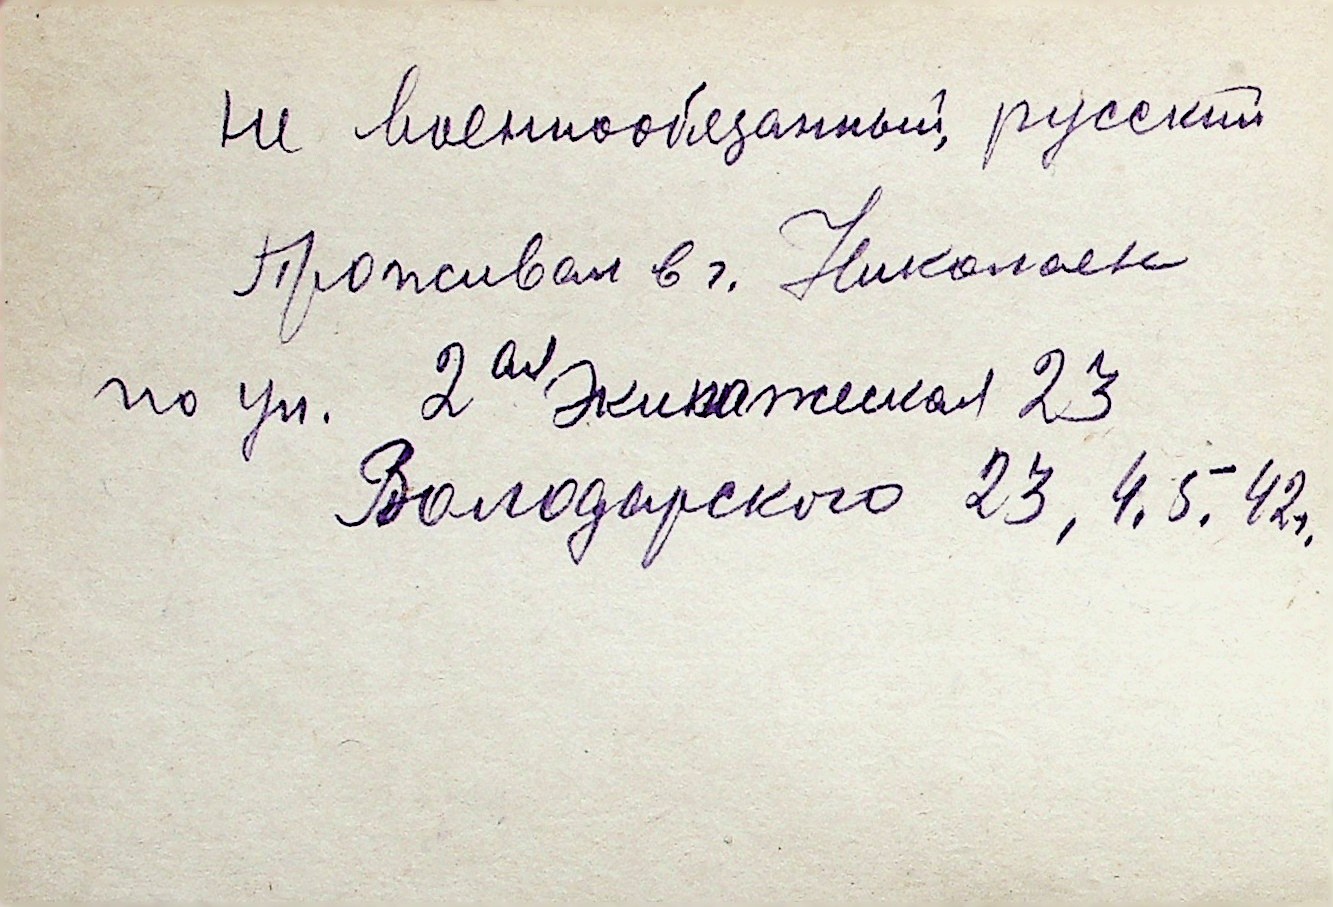 не военнообязанный, русский
Проживал в г. Николаев
по ул. 2ая Экипажеская 23
Володарского 23, 4.5.42г.